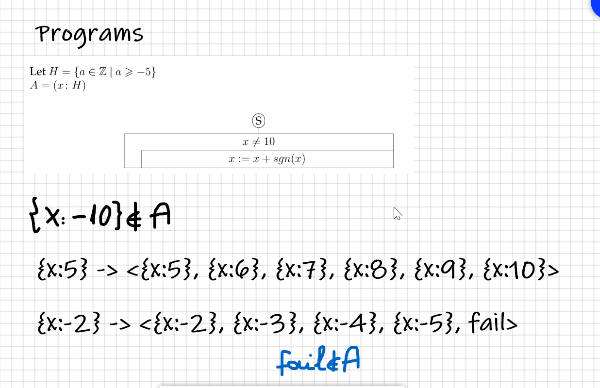 Programs
Let H = {a ∈ ℤ | a ⩾ −5}
A = (x: H)
S
x ≠ 10
x := x + sgn(x)
{x:-10}∉A
{x:5} -> <{x:5}, {x:6}, {x:7}, {x:8}, {x:9}, {x:10}>
{x:-2} -> <{x:-2}, {x:-3}, {x:-4}, {x:-5}, fail>
fail∉A